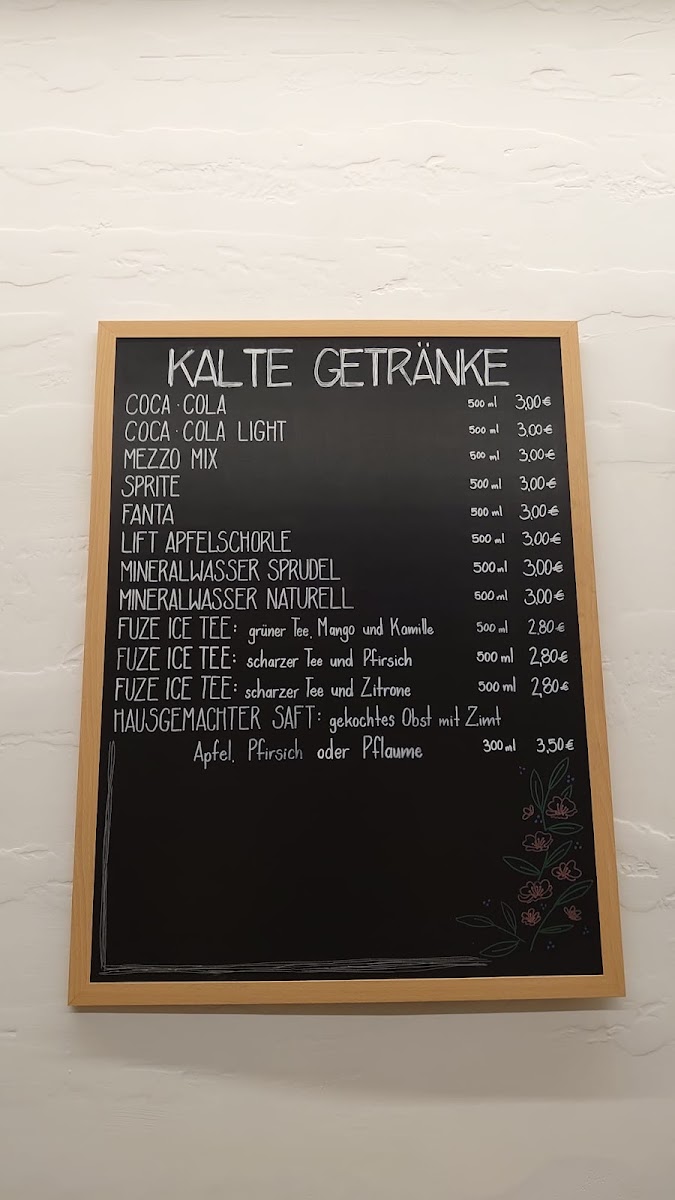 KALTE GETRÄNKE
COCA·COLA 500 ml 3,00€
COCA·COLA LIGHT 500 ml 3,00€
MEZZO MIX 500 ml 3,00€
SPRITE 500 ml 3,00€
FANTA 500 ml 3,00€
LIFT APFELSCHORLE 500 ml 3,00€
MINERALWASSER SPRUDEL 500 ml 3,00€
MINERALWASSER NATURELL 500 ml 3,00€
FUZE ICE TEE: grüner Tee, Mango und Kamille 500 ml 2,80€
FUZE ICE TEE: scharzer Tee und Pfirsich 500 ml 2,80€
FUZE ICE TEE: scharzer Tee und Zitrone 500 ml 2,80€
HAUSGEMACHTER SAFT: gekochtes Obst mit Zimt
Apfel, Pfirsich oder Pflaume 300 ml 3,50€